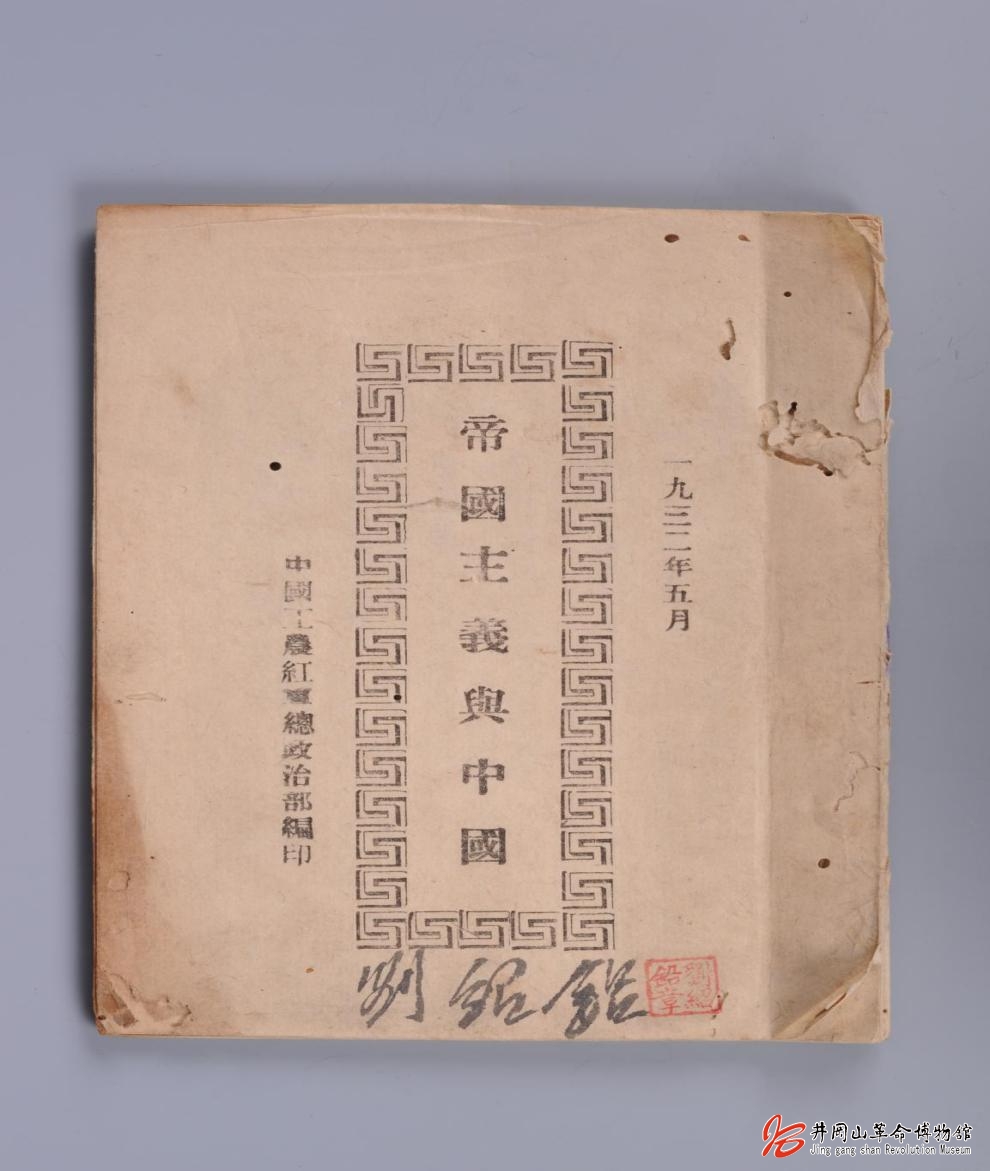 一九三二年五月
帝國主義與中國
中國工農紅軍總政治部編印
井岡山革命博物館
Jing gang shan Revolution Museum